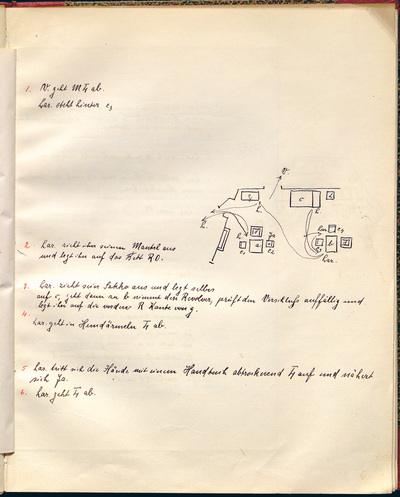 1. V. geht M T4 ab.
Lar. steht hinter e3
V.
c
d
h.
Lar.
e3
b
Ja
a
e2
e1
Lar.
2 Lar. zieht ihm seinen Mantel aus
und legt ihn auf das Bett R O.
3. Lar. zieht sein Sakko aus und legt selbes
auf c, geht dann zu b nimmt den Revolver, prüft den Verschluß auffällig und
legt ihn auf die vordere R Kante von g.
4.
Lar. geht in Hemdärmeln T4 ab.
5 Lar. tritt sich die Hände mit einem Handtuch abtrocknend T4 auf und nähert
sich Ja.
6. Lar. geht T4 ab.